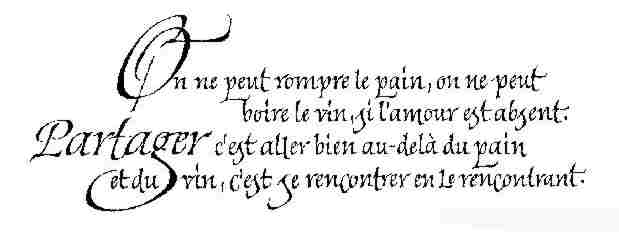 On ne peut rompre le pain, on ne peut
boire le vin, si l'amour est absent.
Partager c'est aller bien au-delà du pain
et du vin, c'est se rencontrer en Le rencontrant.